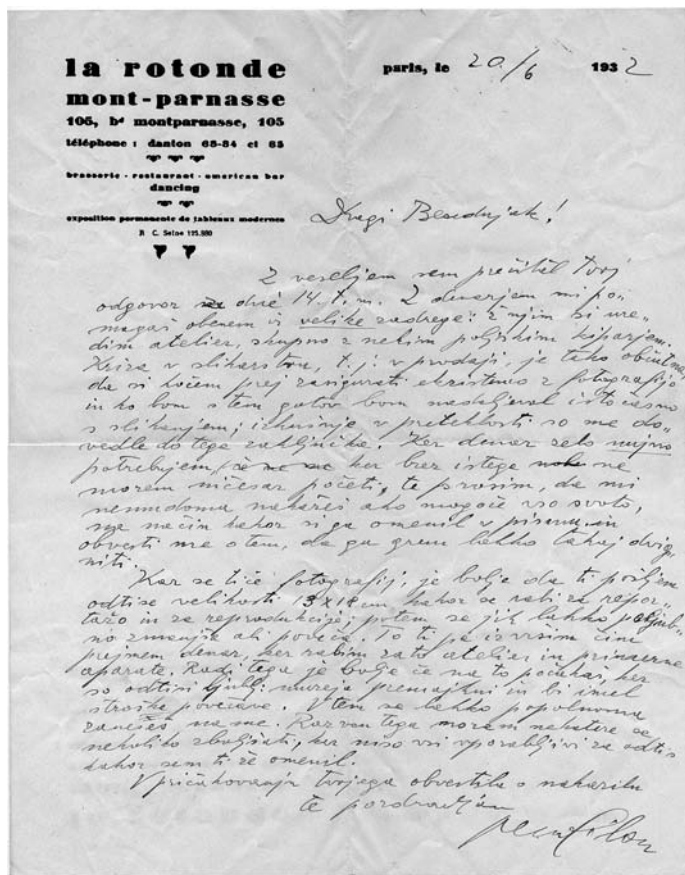 la rotonde
mont-parnasse
105, bd montparnasse, 105
téléphone : danton 68-84 et 85
brasserie - restaurant - american bar
dancing
exposition permanente de tableaux modernes
R. C. Seine 195.880
paris, le 20/6 1932
Dragi Besednjak!
Z veseljem sem prečital Tvoj
odgovor z dne 14. t. m. Z denarjem mi po-
magaš obenem iz velike zadrege: ž njim si ure-
dim atelier, skupno z nekim poljskim kiparjem.
Kriza v slikarstvu, t. j. v prodaji, je tako občutna,
da si hočem prej zasigurati eksistenco z fotografijo
in ko bom s tem gotov bom nadaljeval istočasno
s slikanjem; izkušnje v preteklosti so me do-
vedle do tega zaključka. Ker denar zelo nujno
potrebujem, ker brez istega ne
morem ničesar početi, te prosim, da mi
nemudoma nakažeš ako mogoče vso svoto,
na način kakor si ga omenil v pismu in
obvesti me o tem, da ga grem lahko takoj dvig-
niti.
Kar se tiče fotografij, je bolje da ti pošljem
odtise velikosti 13x18 cm, kakor se rabi za repor-
tažo in za reprodukcije; potem se jih lahko poljub-
no zmanjša ali poveča. To ti pa izvršim čim
prejmem denar, ker rabim zato atelier in primerne
aparate. Radi tega je bolje če na to počakaš, ker
so odtisi premajhni in bi imel
stroške povečave. V tem se lahko popolnoma
zaneseš na me. Razven tega moram nekatere še
nekoliko zboljšati, ker niso vsi uporabljivi za odtis
kakor sem ti že omenil.
V pričakovanju tvojega obvestila o nakazilu
te pozdravljam
Veno Pilon